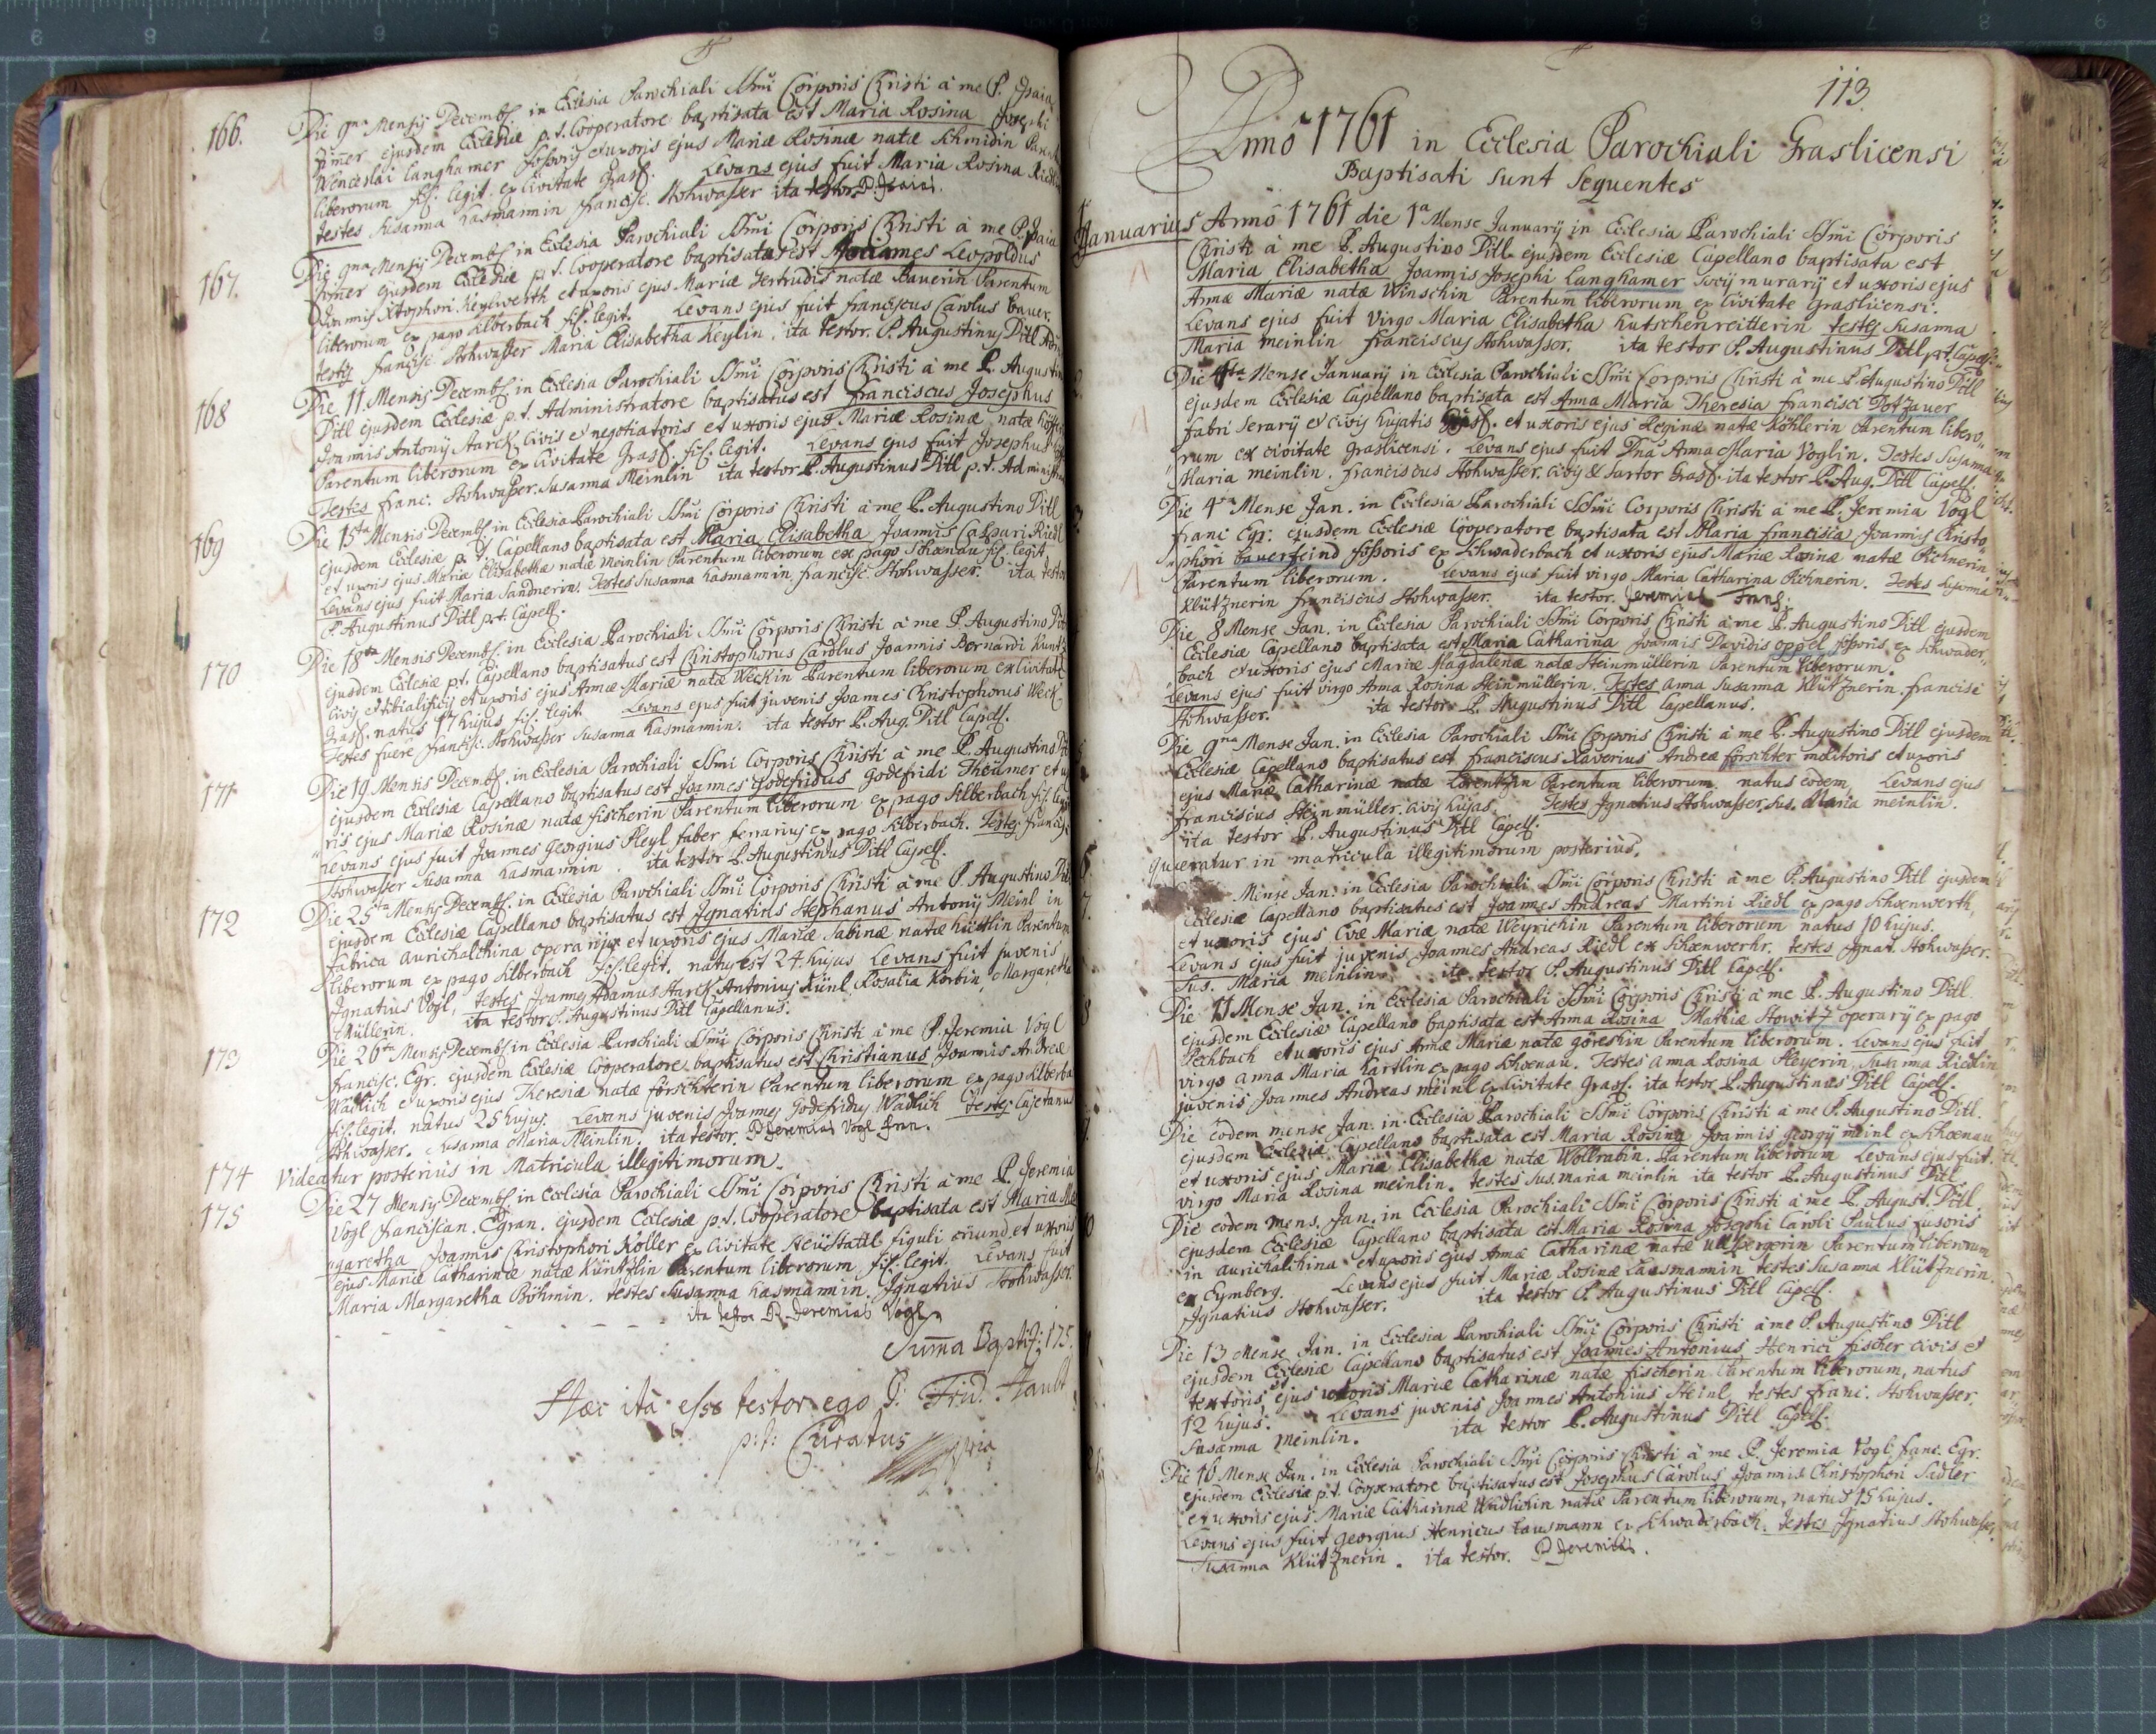 166. Die 9na Mensis Decembs. in Ecclesia Parochiali SSmi Corporis Christi à me P. Isaia
Zimer ejusdem Ecclesiæ p.t. Cooperatore baptisata est Maria Rosina Josephi
Wenceslai Langhamer fossoris et uxoris ejus Mariæ Rosinæ natæ Schmidin
liberorum fis. legit. ex Civitate Gras. Levans ejus fuit Maria Rosina
testes Susanna Kasmannin Francisc. Stohwasser ita testor P. Isaias.
167. Die 9na Mensis Decembs. in Ecclesia Parochiali SSmi Corporis Christi à me P. Isaia
Zimer ejusdem Ecclesiæ p.t. Cooperatore baptisatus est Joannes Leopoldus
Joannis Xtophori Keylwerth et uxoris ejus Mariæ Gertrudis natæ Bauerin Parentum
liberorum ex pago Silberbach fis. legit. Levans ejus fuit Franciscus Carolus Bauer.
testes Francisc. Stohwasser Maria Elisabetha Keylin. ita testor. P. Augustinus Ditl
168 Die 11 Mensis Decembs. in Ecclesia Parochiali SSmi Corporis Christi à me P. Augustino
Ditl ejusdem Ecclesiæ p.t. Administratore baptisatus est Franciscus Josephus
Joannis Antonij Starck Civis et negotiatoris et uxoris ejus Mariæ Rosinæ natæ
Parentum liberorum ex Civitate Gras. fis. legit. Levans ejus fuit Josephus
Testes Franc. Stohwasser. Susanna Meinlin ita testor P. Augustinus Ditl p.t. Administ
169 Die 15ta Mensis Decembs. in Ecclesia Parochiali SSmi Corporis Christi à me P. Augustino Ditl
ejusdem Ecclesiæ p.t. Capellano baptisata est Maria Elisabetha Joannis Caspari Riedl
et uxoris ejus Maria Elisabethæ natæ Meinlin Parentum liberorum ex pago Schœnau fis. legit.
Levans ejus fuit Maria Sandnerin. Testes Susanna Kasmannin, Francisc. Stohwasser. ita testor
P. Augustinus Ditl p.t. Capell.
170 Die 18ta Mensis Decembs. in Ecclesia Parochiali SSmi Corporis Christi à me P. Augustino Ditl
ejusdem Ecclesiæ p.t. Capellano baptisatus est Christophorus Carolus Joannis Bernardi
civis et tibialificis et uxoris ejus Annæ Mariæ natæ Weckin Parentum liberorum ex Civitate
Gras. natus 17 hujus fis. legit. Levans ejus fuit juvenis Joannes Christophorus Weck.
Testes fuere Francisc. Stohwasser Susanna Kasmannin. ita testor P. Aug. Ditl Capell.
171 Die 19 Mensis Decembs. in Ecclesia Parochiali SSmi Corporis Christi à me P. Augustino
ejusdem Ecclesiæ Capellano baptisatus est Joannes Godefridus Godefridi Theumer et uxo
ris ejus Mariæ Rosinæ natæ Fischerin Parentum liberorum ex pago Silberbach fis. legit
Levans ejus fuit Joannes Georgius Pleyl faber ferrarius ex pago Silberbach. Testes Francisc.
Stohwasser Susanna Kasmannin. ita testor P. Augustinus Ditl Capell.
172 Die 25ta Mensis Decembs. in Ecclesia Parochiali SSmi Corporis Christi à me P. Augustino
ejusdem Ecclesiæ Capellano baptisatus est Ignatius Stephanus Antonij Meinl in
fabrica aurichalchina operarij et uxoris ejus Mariæ Sabinæ natæ Parentum
liberorum ex pago Silberbach fis. legit. natus est 24 hujus Levans fuit juvenis
Ignatius Vogl, testes Joannes Adamus Starck Antonius Künl, Rosalia Korbin, Margaretha
Müllerin. ita testor P. Augustinus Ditl Capellanus.
173 Die 26ta Mensis Decembs. in Ecclesia Parochiali SSmi Corporis Christi à me P. Jeremia Vogl
Francisc. Egr. ejusdem Ecclesiæ Cooperatore baptisatus est Christianus Joannis Andreæ
Wadlich et uxoris ejus Theresiæ natæ Förschterin Parentum liberorum ex pago Silberba
fis. legit. natus 25 hujus. Levans juvenis Joannes Godefridus Wadlich testes Cajetanus
Stohwasser. Susanna Maria Meinlin. ita testor. P Jeremias Vogl Fran.
174 Videatur posterius in Matricula illegitimorum.
175 Die 27 Mensis Decembs. in Ecclesia Parochiali SSmi Corporis Christi à me P. Jeremia
Vogl Franciscan. Egran. ejusdem Ecclesiæ p.t. Cooperatore baptisata est Maria Ma
garetha Joannis Christophori Koller ex Civitate Neüstadl figuli oriund. et uxoris
ejus Mariæ Catharinæ natæ Küntzlin Parentum liberorum fis. legit. Levans fuit
Maria Margaretha Böhmin. testes Susanna Kasmannin. Ignatius Stohwasser.
ita testor P. Jeremias Vogl
Summa Baptis: 175.
Hæc ita esse testor ego
p:t: Curatus
113.
Anno 1761 in Ecclesia Parochiali Graslicensi
Baptisati sunt Sequentes
1. Januarius Anno 1761 die 1a Mense Januarij in Ecclesia Parochiali SSmi Corporis
Christi à me P. Augustino Ditl ejusdem Ecclesiæ Capellano baptisata est
Maria Elisabetha Joannis Josephi Langhamer Socij murarij et uxoris ejus
Annæ Mariæ natæ Winschin Parentum liberorum ex Civitate Graslicensi.
Levans ejus fuit Virgo Maria Elisabetha Kutschenreitterin testes Susanna
Maria Meinlin Franciscus Stohwasser. ita testor P. Augustinus Ditl p.t. Capell.
2. Die 4ta Mense Januarij in Ecclesia Parochiali SSmi Corporis Christi à me P. Augustino Ditl
ejusdem Ecclesiæ Capellano baptisata est Anna Maria Theresia Francisci Potzauer
fabri serarij et civis hujatis et uxoris ejus Reginæ natæ Köhlerin Parentum libero
rum ex civitate Graslicensi. Levans ejus fuit Dna Anna Maria Voglin. Testes Susanna
Maria Meinlin. Franciscus Stohwasser. civis & sartor Gras. ita testor P. Aug. Ditl Capell.
3. Die 4ta Mense Jan. in Ecclesia Parochiali SSmi Corporis Christi à me P. Jeremia Vogl
Franc. Egr. ejusdem Ecclesiæ Cooperatore baptisata est Maria Francisca Joannis Christo
phori Bauerfeind fossoris ex Schwaderbach et uxoris ejus Mariæ Rosinæ natæ Pichnerin
Parentum liberorum. Levans ejus fuit virgo Maria Catharina Pichnerin. Testes Susanna
Klütznerin Franciscus Stohwasser. ita testor. Jeremias Fran.
Die 8 Mense Jan. in Ecclesia Parochiali SSmi Corporis Christi à me P. Augustino Ditl ejusdem
Ecclesiæ Capellano baptisata est Maria Catharina Joannis Davidis Oppel fossoris ex Schwader
bach et uxoris ejus Mariæ Magdalenæ natæ Steinmüllerin Parentum liberorum.
Levans ejus fuit virgo Anna Rosina Steinmüllerin. Testes Anna Susanna Klütznerin. Francisc
Stohwasser. ita testor P. Augustinus Ditl Capellanus.
5. Die 9na Mense Jan. in Ecclesia Parochiali SSmi Corporis Christi à me P. Augustino Ditl ejusdem
Ecclesiæ Capellano baptisatus est Franciscus Xaverius Andreæ Förschter molitoris et uxoris
ejus Mariæ Catharinæ natæ Lorentzin Parentum liberorum. natus eodem. Levans ejus
Franciscus Steinmüller. civis hujas. Testes Ignatius Stohwasser. Sus. Maria Meinlin.
ita testor P. Augustinus Ditl Capell.
6. Quæratur in matricula illegitimorum posterius.
7. Mense Jan. in Ecclesia Parochiali SSmi Corporis Christi à me P. Augustino Ditl ejusdem
Ecclesiæ Capellano baptisatus est Joannes Andreas Martini Riedl ex pago Schœnwerth,
et uxoris ejus Evæ Mariæ natæ Weyrichin Parentum liberorum natus 10 hujus.
Levans ejus fuit juvenis Joannes Andreas Riedl ex Schœnwerhr. testes Ignat. Stohwasser.
Sus. Maria Meinlin. ita testor P. Augustinus Ditl Capell.
8 Die 11 Mense Jan. in Ecclesia Parochiali SSmi Corporis Christi à me P. Augustino Ditl
ejusdem Ecclesiæ Capellano baptisata est Anna Rosina Mathiæ Stowitz operarij ex pago
Pechbach et uxoris ejus Annæ Mariæ natæ Göreshin Parentum liberorum. Levans ejus fuit
virgo Anna Maria Hartlin ex pago Schœnau. Testes Anna Rosina Pleyerin, Susanna Riedlin
juvenis Joannes Andreas Meinl ex Civitate Gras. ita testor P. Augustinus Ditl Capell.
9. Die eodem mense Jan. in Ecclesia Parochiali SSmi Corporis Christi à me P. Augustino Ditl.
ejusdem Ecclesiæ Capellano baptisata est Maria Rosina Joannis Georgij Meinl ex Schœnau
et uxoris ejus Maria Elisabethæ natæ Wollrabin. Parentum liberorum Levans ejus fuit.
virgo Maria Rosina Meinlin. testes Sus. Maria Meinlin ita testor P. Augustinus Ditl
10 Die eodem mens. Jan. in Ecclesia Parochiali SSmi Corporis Christi à me P. August. Ditl.
ejusdem Ecclesiæ Capellano baptisata est Maria Rosina Josephi Caroli Paulus fusoris
in aurichalchina et uxoris ejus Annæ Catharinæ natæ Parentum liberorum
ex Eymberg. Levans ejus fuit Mariæ Rosinæ testes Susanna Klütznerin.
Ignatius Stohwasser. ita testor P. Augustinus Ditl Capell.
Die 13 Mense Jan. in Ecclesia Parochiali SSmi Corporis Christi à me P. Augustino Ditl
ejusdem Ecclesiæ Capellano baptisatus est Joannes Antonius Henrici Fischer civis et
textoris, et ejus uxoris Mariæ Catharinæ natæ Fischerin Parentum liberorum, natus
12 hujus. Levans juvenis Joannes Antonius Steinl, testes Franc. Stohwasser.
Susanna Meinlin. ita testor P. Augustinus Ditl Capell.
Die 16 Mense Jan. in Ecclesia Parochiali SSmi Corporis Christi à me P. Jeremia Vogl. Franc. Egr.
ejusdem Ecclesiæ p.t. Cooperatore baptisatus est Josephus Carolus Joannis Christophori Sadler
et uxoris ejus Mariæ Catharinæ Wadlichin natæ Parentum liberorum, natus 15 hujus.
Levans ejus fuit Georgius Henricus Hausmann ex Schwaderbach. testes Ignatius Stohwasser.
Susanna Klütznerin. ita testor. P Jeremias.